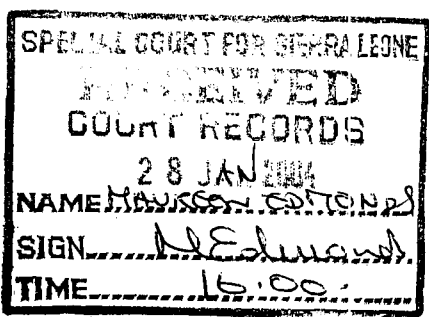 SPECIAL COURT FOR SIERRA LEONE
RECEIVED
COURT RECORDS
28 JAN 2004
NAME MAUREEN EDMONDS
SIGN MEdmonds
TIME 16.00.